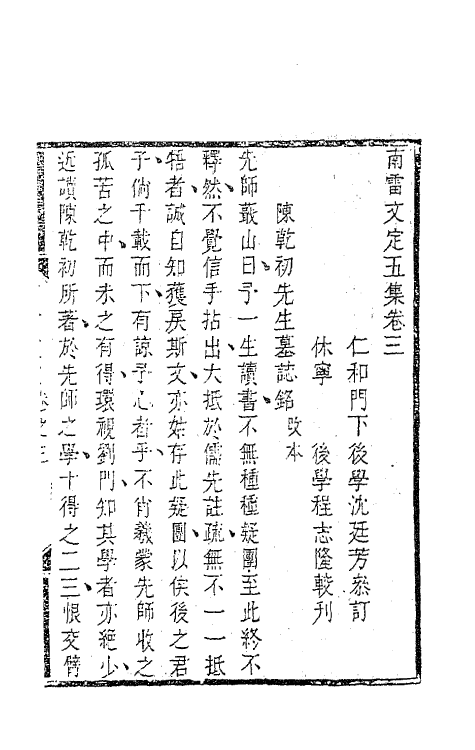 南雷文定五集卷三
仁和門下後學沈廷芳叅訂
休寧　後學程志隆較刋
陳乾初先生墓誌銘改本
先師蕺山曰予一生讀書不無種種疑團至此終不
釋然不覺信手拈出大抵於儒先註疏無不一一抵
牾者誠自知獲戾斯文亦姑存此疑團以俟後之君
子倘千載而下有諒予心者乎不肖羲蒙先師收之
孤苦之中而未之有得環視劉門知其學者亦絕少
近讀陳乾初所著於先師之學十得之二三恨交臂
卷之三